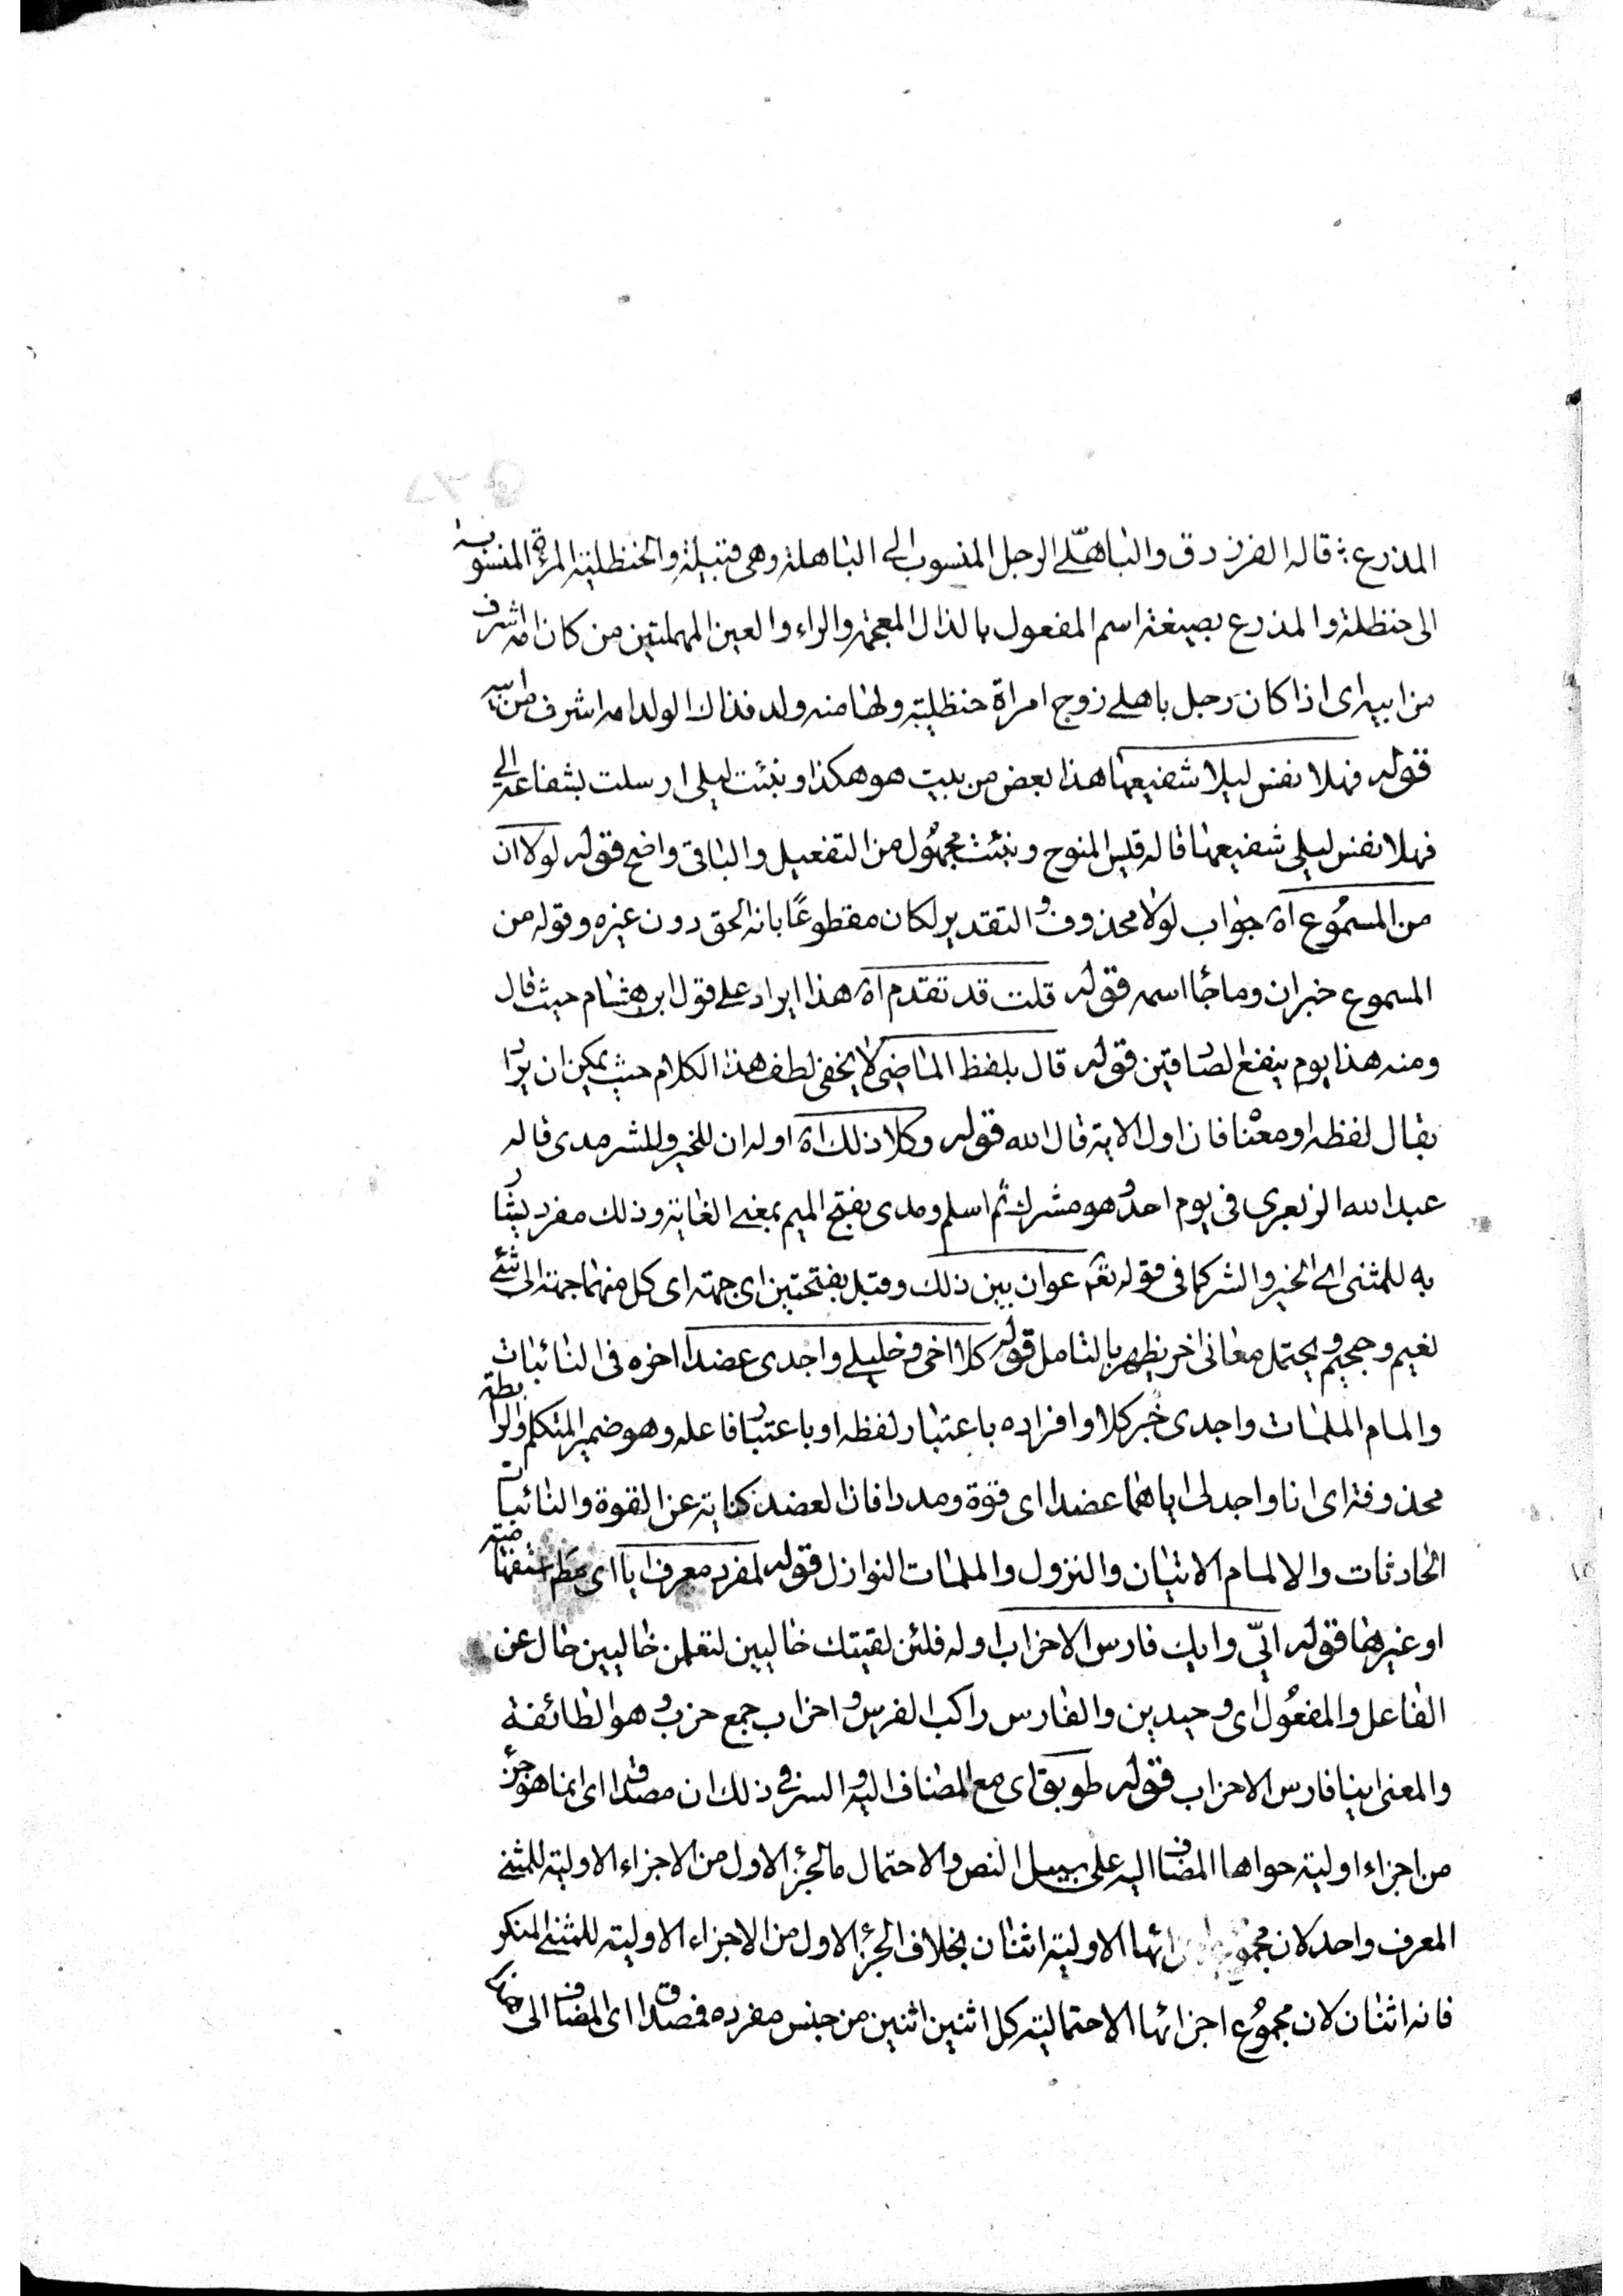 المذرع ؞ قاله الفرزدق والباهلي الرجل المنسوب الى الباهلة وهى قبيلة والحنظلية المرءة المنسوبة
الى حنظلة والمذرع بصيغة اسم المفعول بالذال المعجمة والراء والعين المهملتين من كان امه اشرف
من ابيه اى اذا كان رجل باهلي زوج امراة حنظلية ولها منه ولد فذاك الولد امه اشرف من ابيه
قوله فهلا نفس ليلا شفيعها هذا بعض من بيت هو هكذا ونبئت ليلى ارسلت بشفاعة الي
فهلا نفس ليلى شفيعها قاله قيس الملوح ونبئت مجهول من التفعيل والباقى واضح قوله لولا ان
من المسموع اه جواب لولا محذوف والتقدير لكان مقطوعًا بانه الحق دون غيره وقوله من
المسموع خبر ان وما جا اسمه قوله قلت قد تقدم اه هذا ايراد على قول ابن هشام حيث قال
ومنه هذا يوم ينفع الصادقين قوله قال بلفظ الماضى لا يخفى لطف هذا الكلام حيث يمكن ان يراد
بقال لفظه او معنا فان اول الاية قال الله قوله وكلا ذلك اه اوله ان للخير وللشر مدى قاله
عبد الله الزبعرى فى يوم احد وهو مشرك ثم اسلم ومدى بفتح الميم بمعنى الغاية وذلك مفرد يشار
به للمثنى اى الخير والشر كما فى قوله تعم عوان بين ذلك وقبل بفتحتين اى جهة اى كل منهما جهة الى شئ
نعيم وجحيم ويحتمل معانى اخر يظهر بالتامل قوله كلا اخى وخليلي واجدى عضدا اخره فى النائبات
والمام الملمات واجدى خبر كلا وافراده باعتبار لفظه او باعتبار فاعله وهو ضمير المتكلم والرابطة
محذوفة اى انا واجد لى اياهما عضدا اى قوة ومددا فان العضد كناية عن القوة والنائبات
الحادثات والالمام الاتيان والنزول والملمات النوازل قوله لمفرد معرف ايا اى
او غيرها قوله ايّي وايك فارس الاحزاب اوله فلئن لقيتك خاليين لتعلمن خاليين حال عن
الفاعل والمفعول اى وحيدين والفارس راكب الفرس واحزاب جمع حزب وهو الطائفة
والمعنى اينا فارس الاحزاب قوله طوبق اى مع المضاف اليه والسر فى ذلك ان مصداق اى انما هو جزء
من اجزاء اولية حواها المضاف اليه على سبيل النص والاحتمال فالجزء الاول من الاجزاء الاولية للمثنى
المعرف واحد لان مجموع اجزائها الاولية اثنان بخلاف الجزء الاول من الاجزاء الاولية للمثنى المنكر
فانه اثنان لان مجموع اجزائها الاحتمالية كل اثنين اثنين من جنس مفرده فمصداق اى المضاف الى